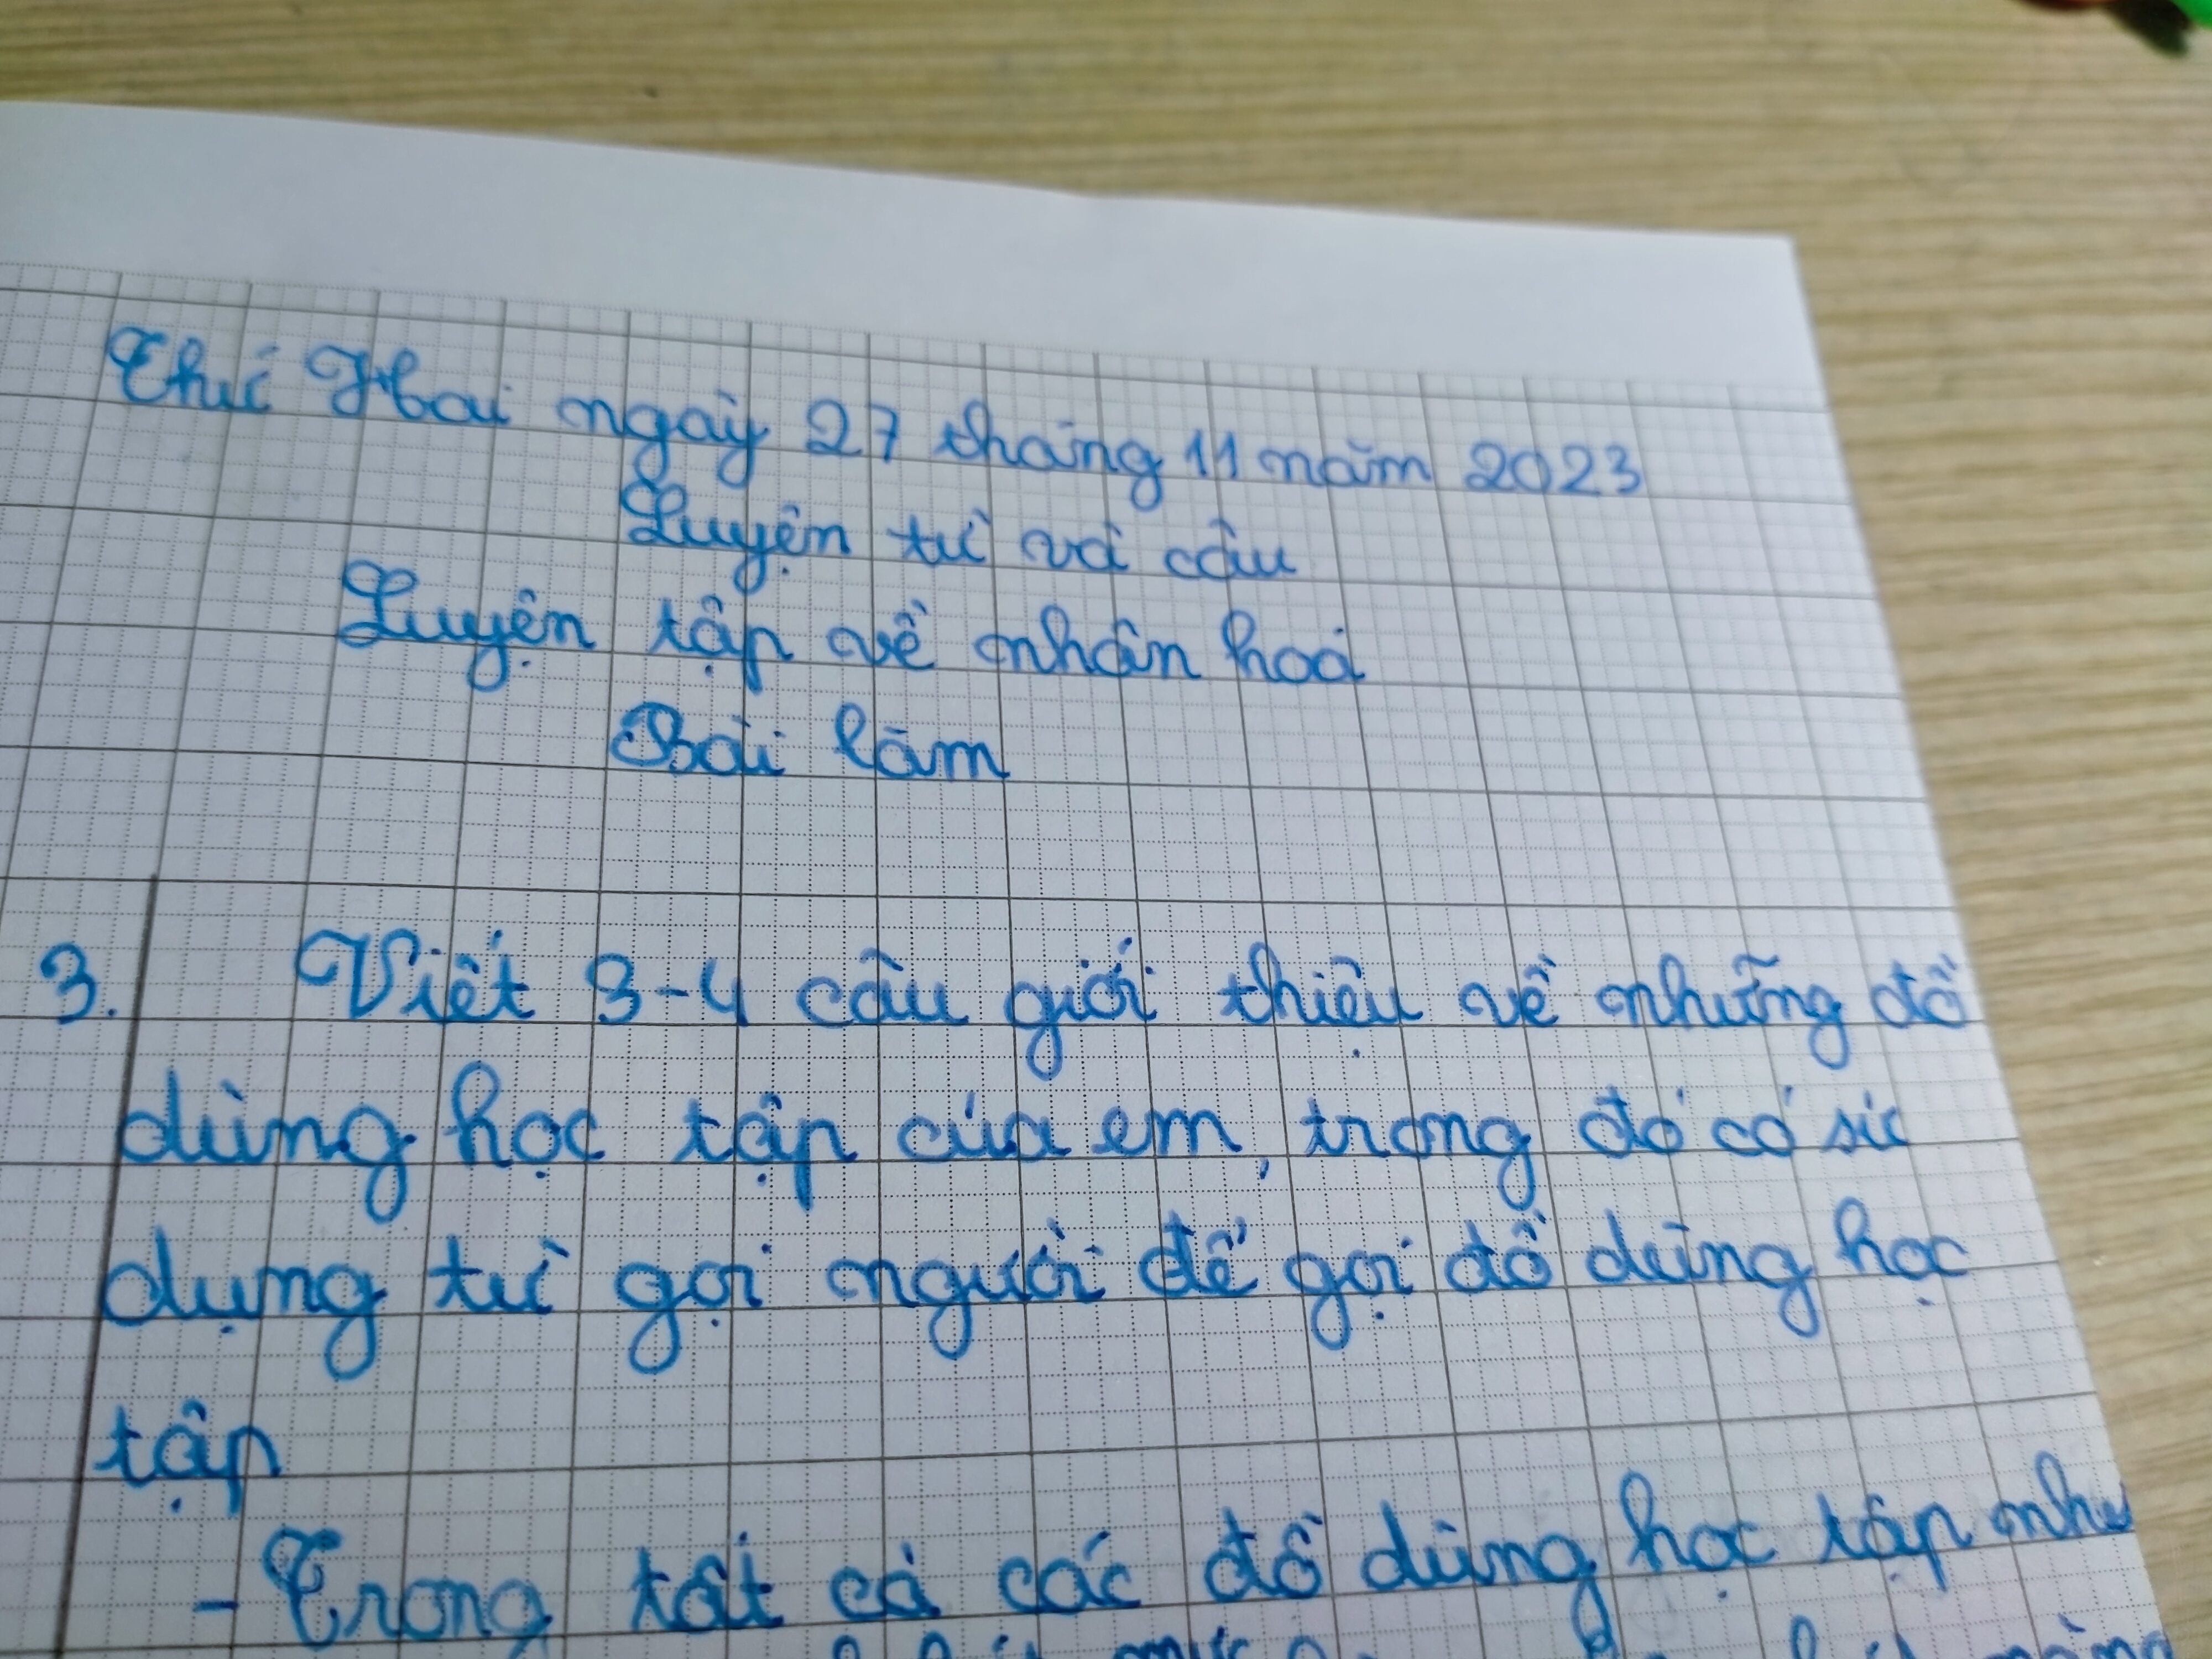 Thứ Hai ngày 27 tháng 11 năm 2023
Luyện từ và câu
Luyện tập về nhân hoá
Bài làm
3. Viết 3-4 câu giới thiệu về những đồ
dùng học tập của em, trong đó có sử
dụng từ gọi người để gọi đồ dùng học
tập
- Trong tất cả các đồ dùng học tập như